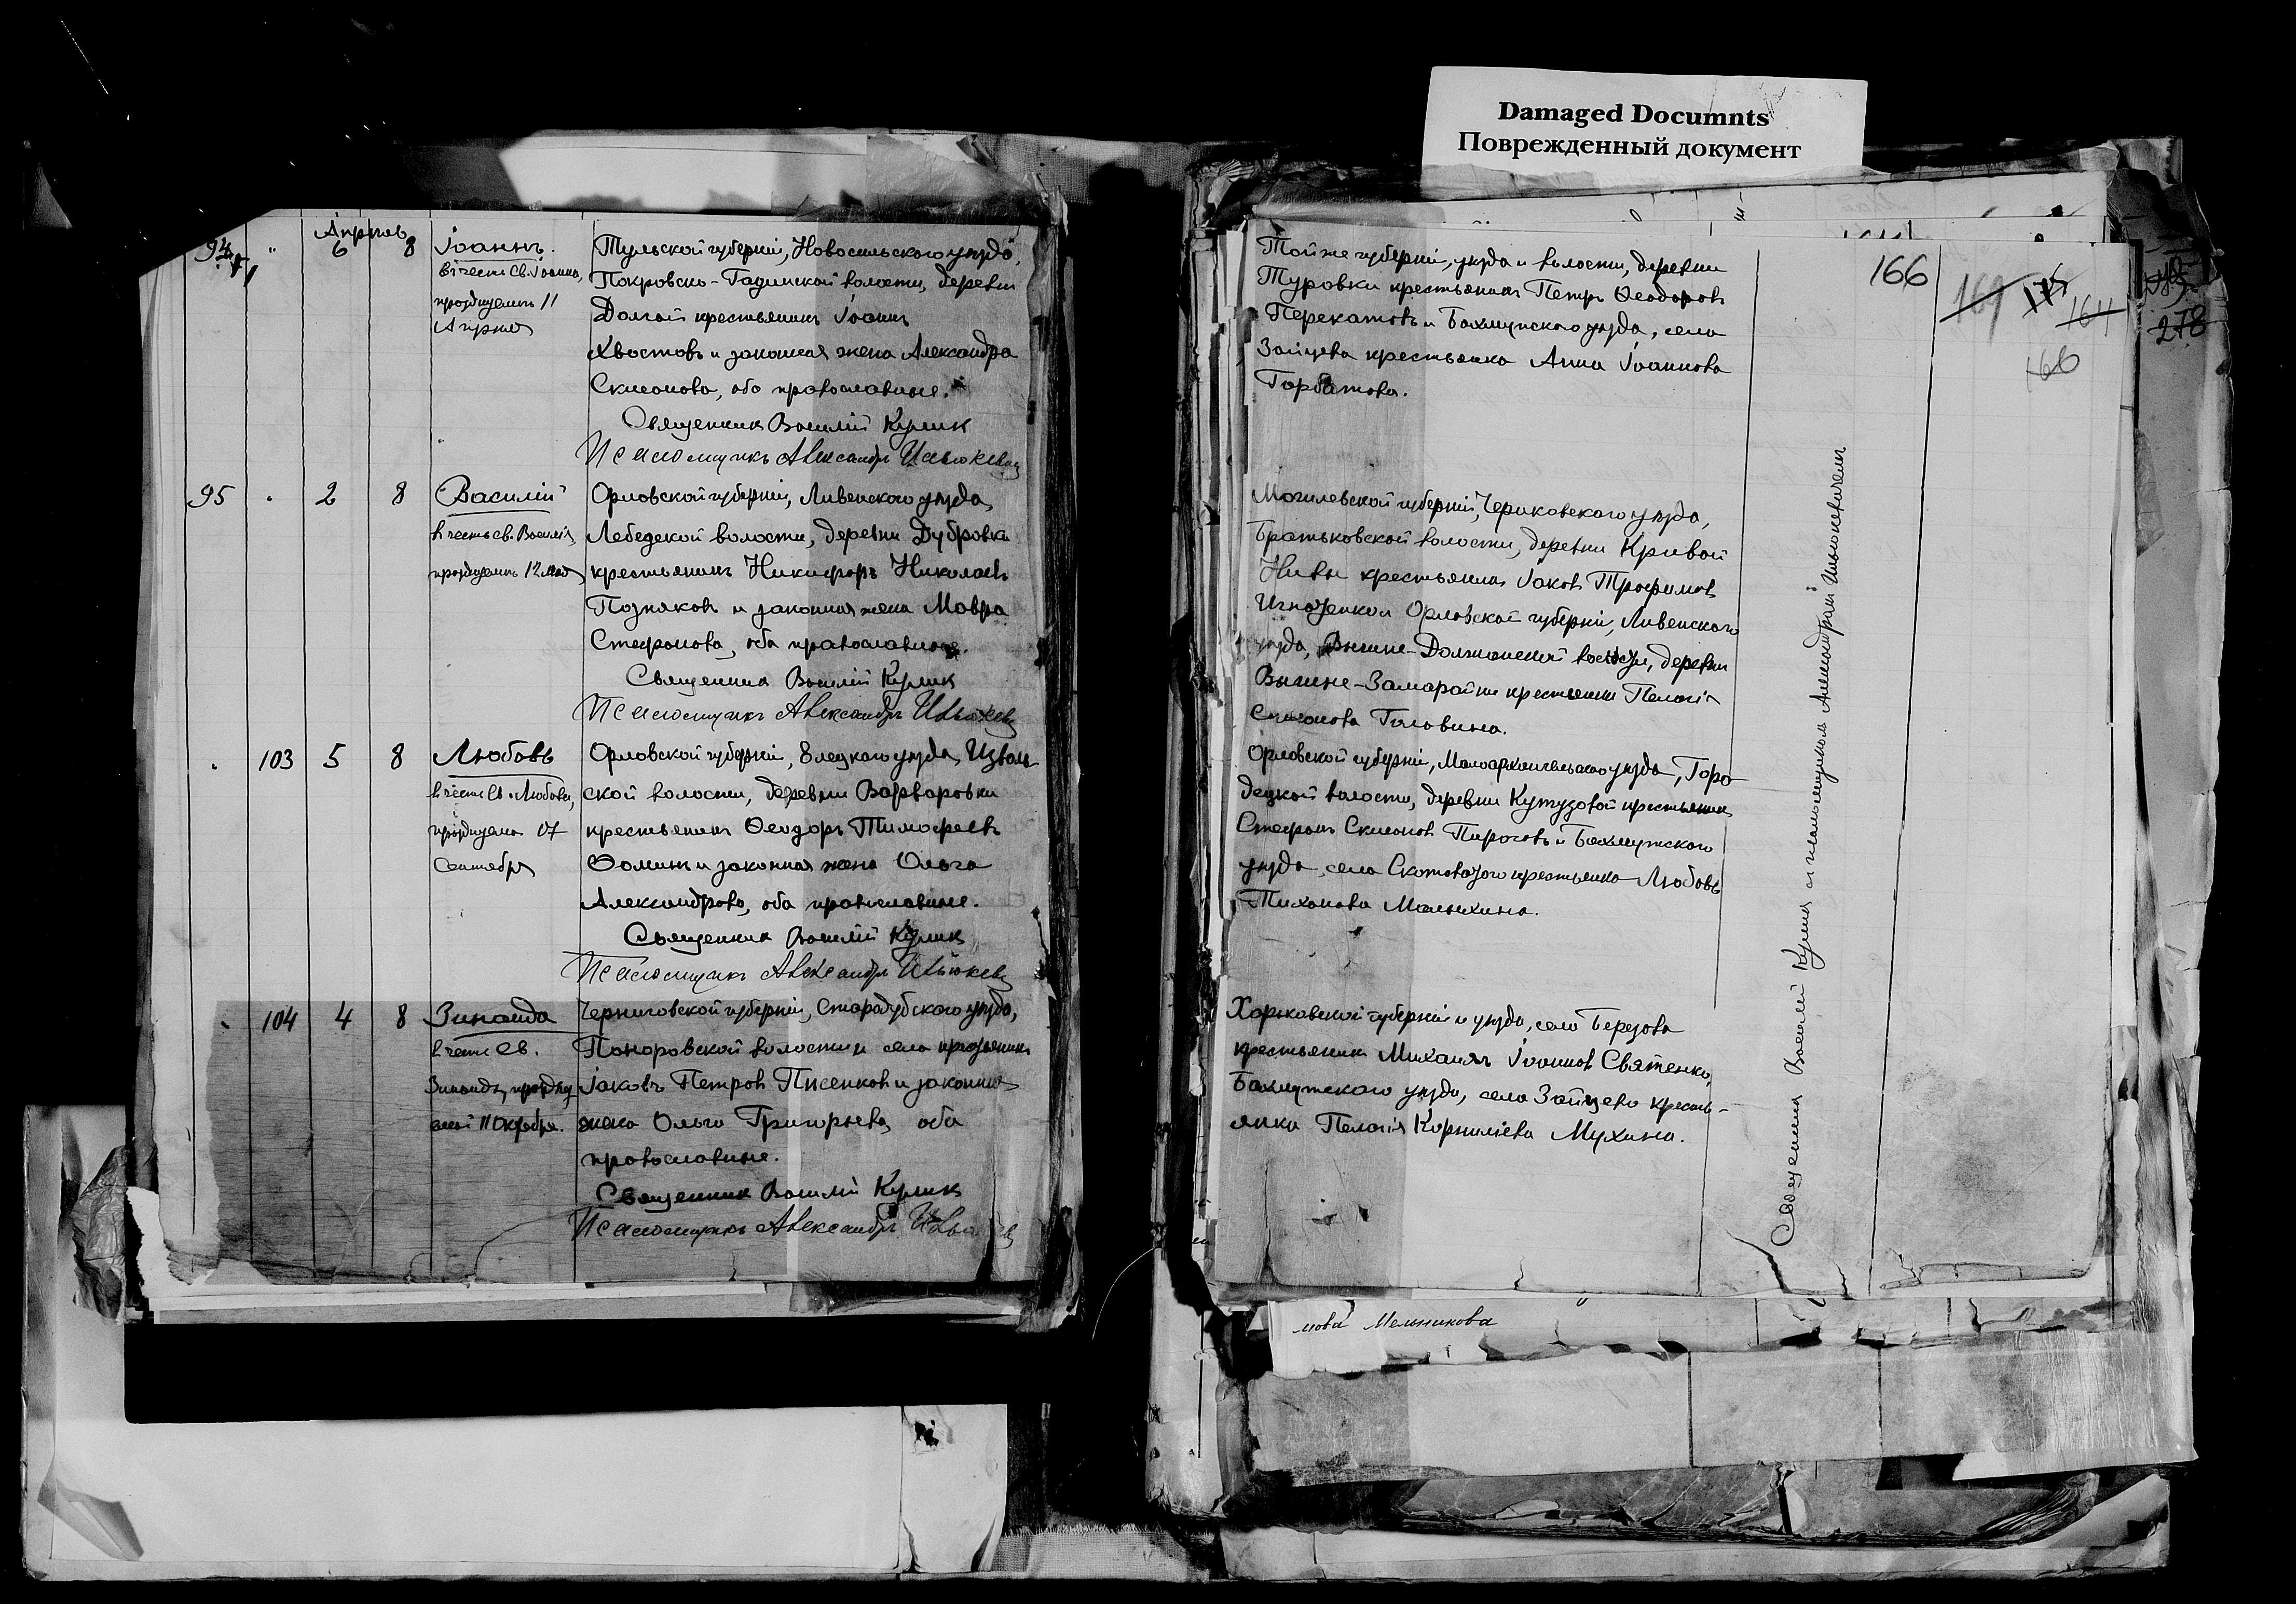 Damaged Documnts
Поврежденный документ
94
Апрѣль
6
8
Іоаннъ.
въ честь Св. Іоанна,
празднуемаго 11
Апрѣля
Тульской губерніи, Новосильскаго уѣзда,
Покровско- волости, деревни
Долгой крестьянинъ Іоаннъ
Хвостовъ и законная жена Александра
Симеонова, оба православные.
Священникъ Василій Куликъ
Псаломщикъ Александръ
95
2
8
Василій
въ честь св. Василія,
празднуемаго 12 мая
Орловской губерніи, Ливенскаго уѣзда,
Лебедской волости, деревни Дубровка
крестьянинъ Никифоръ Николаевъ
Позняковъ и законная жена Мавра
Стефанова, оба православные.
Священникъ Василій Куликъ
Псаломщикъ Александръ
103
5
8
Любовь
въ честь Св. Любови,
празднуемой 17
Сентября
Орловской губерніи, Елецкаго уѣзда, Изваль-
ской волости, деревни Варваровки
крестьянинъ Ѳеодоръ Тимофеевъ
Ѳоминъ и законная жена Ольга
Александрова, оба православные.
Священникъ Василій Куликъ
Псаломщикъ Александръ
104
4
8
Зинаида
въ честь Св.
Зинаиды, празднуе
мой 11 Октября.
Черниговской губерніи, Стародубскаго уѣзда,
Понуровской волости и села крестьянинъ
Іаковъ Петровъ Писенковъ и законная
жена Ольга Григорьева, оба
православные.
Священникъ Василій Куликъ
Псаломщикъ Александръ
Той же губерніи, уѣзда и волости, деревни
Туровки крестьянинъ Петръ Ѳеодоровъ
Перекатовъ и Бахмутскаго уѣзда, села
Зайцева крестьянка Анна Іоаннова
Горбатова.
Могилевской губерніи, Чериковскаго уѣзда,
Братьковской волости, деревни Кривой
Нивы крестьянинъ Іаковъ Трофимовъ
Игнатенко и Орловской губерніи, Ливенскаго
уѣзда, волости, деревни
крестьянка Пелагія
Симеонова Головина.
Орловской губерніи, Малоархангельскаго уѣзда, Горо
децкой волости, деревни Кутузовой крестьянинъ
Стефанъ Симеоновъ Пироговъ и Бахмутскаго
уѣзда, села Скотоватаго крестьянка Любовь
Тихонова Малыхина.
Харьковской губерніи и уѣзда, села Березова
крестьянинъ Михаилъ Іоанновъ Святенко,
Бахмутскаго уѣзда, села Зайцево кресть-
янка Пелагія Корниліева Мухина.
Священникъ Василій Куликъ съ псаломщикомъ Александромъ
166
169
164
166
278
мова Мельникова